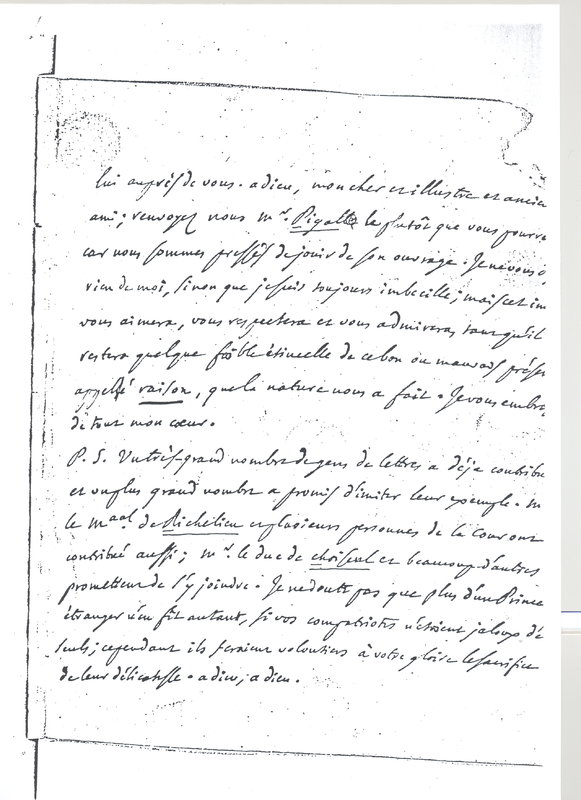 lui auprès de vous. adieu, mon cher et illustre et ancie
ami; renvoyez nous mr. Pigalle le plutôt que vous pourre
car nous sommes pressés de jouir de son ouvrage. Je ne vous
rien de moi, sinon que je suis toujours imbecille; mais cet im
vous aimera, vous respectera et vous admirera, tant qu'il
restera quelque foible étincelle de ce bon ou mauvais présen
appellé raison, que la nature nous a fait. Je vous embra
de tout mon cœur.
P. S. Un très-grand nombre de gens de lettres a déja contribu
et un plus grand nombre a promis d'imiter leur exemple. M
le maal. de Richelieu et plusieurs personnes de la Cour ont
contribué aussi; mr. le duc de choiseul et beaucoup d'autres
promettent de s'y joindre. Je ne doute pas que plus d'un Prince
étranger n'en fît autant, si vos compatriotes n'étoient jaloux d'é
seuls; cependant ils feroient volontiers à votre gloire le sacrifice
de leur délicatesse. adieu, adieu.